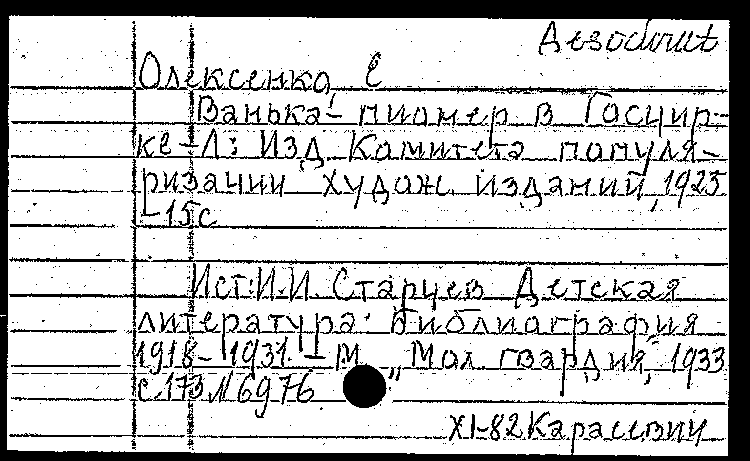 Дезодоrat
Олексенко, Е
Ванька-пионер в Госцир-
ке-Л: Изд. Комитета популя-
ризации худож. изданий, 1925
-15с
Ист: И.И. Старцев Детская
литература: библиография
1918-1931. - М. „Мол. гвардия", 1933
с.173 №6976
XI-82 Карасевич